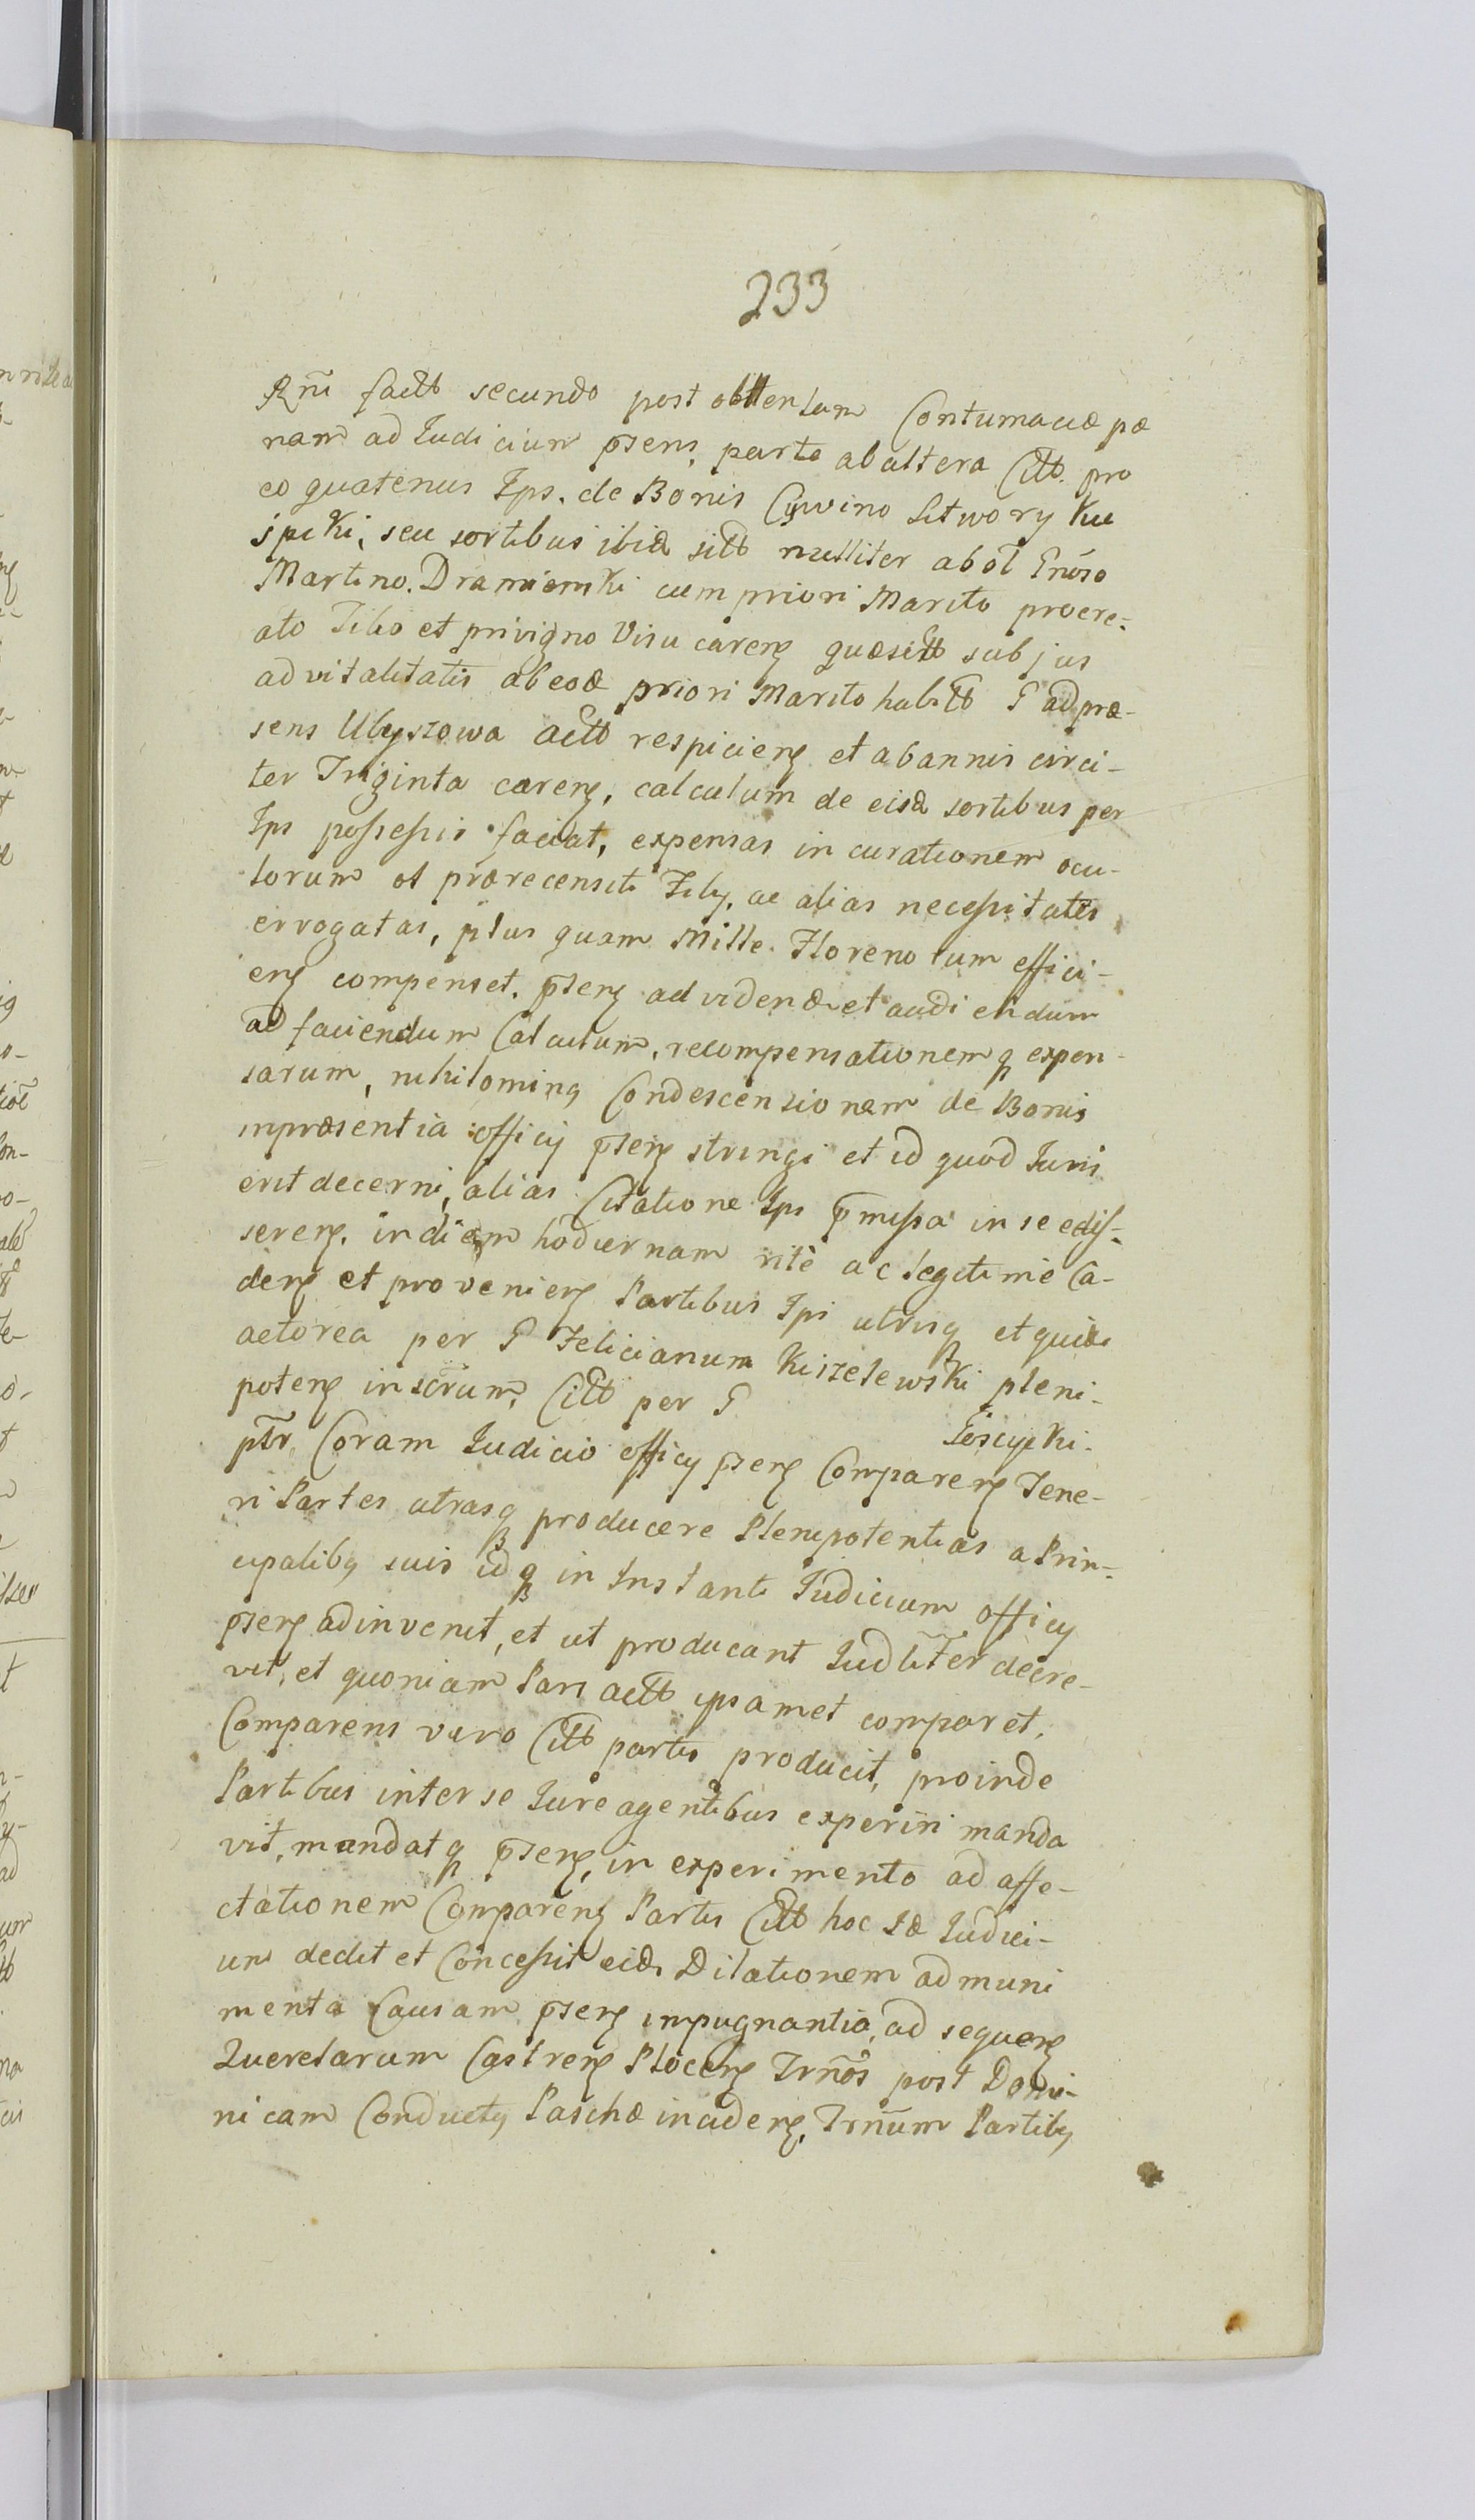 233
Rñi factt secundo post obttentam Contumaciæ pæ
nam ad Iudicium p̃sens, parte ab altera Citt. pro
eo quatenus Ips. de Bonis Cywino Sitwory Ku
spiki, seu sortibus ibid sitt nulliter ab ol Gnõso
Martino. Dramienski cum priori Marito procre-
ato Filio et privigno Visu careñ quæsitt sub jus
advitalitatis ab eod priori Marito habitt G ad præ-
sens Ulyszowa actt respicieñ et ab annis circi-
ter Triginta careñ, calculum de eisd sortibus per
Ips possessis faciat, expensas in curationem ocu-
lorum ol prærecensiti Filij, ac alias necessitates
errogatas, plus quam Mille Florenorum effici-
eñ compenset. p̃señ ad videnđ et audiendum
ad faciendum Calculum, recompensationemq expen-
sarum, nihilominq Condescensionem de Bonis
in præsentia officij p̃señ stringi et id quod Iuris
erit decerni, alias Citatione Ips p̃missa in se edis-
sereñ. in diem hodiernam ritè ac legitimè Ca-
deñ et provenieñ Partibus Ipi utrisq et quidē
actorea per G Felicianum Kiszelewski pleni-
poteñ inscrum, Citt per G
Łoscycki.
p̃tr, Coram Iudicio officij p̃señ Compareñ Tene-
ri Partes utrasq producere Plenipotentias a Prin-
cipalibq suis idq in Instanti Iudicium officij
p̃señ adinvenit, et ut producant Iudlĩter decre-
vit, et quoniam Pars actt ipsamet comparet,
Comparens vero Citt partis producit, proinde
Partibus inter se Iure agentibus experiri manda
vit, mandatq p̃señ, in experimento ad affe-
ctationem Compareñ Partis Citt hoc Id Iudici-
um dedit et Concessit eid. Dilationem ad muni
menta Causam p̃señ impugnantia, ad sequeñ
Querelarum Castreñ Ploceñ Trñõs post Domi-
nicam Conductq Paschæ incideñ, Trñum Partibq